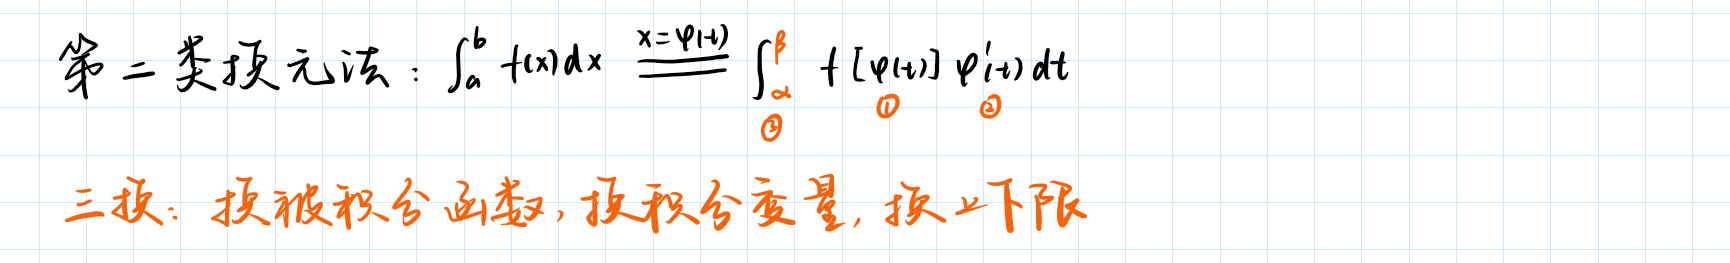 第二类换元法：∫_a^b f(x)dx \xlongequal{x=φ(t)} ∫_α^β f[φ(t)] φ'(t)dt
③ ① ②
三换：换被积分函数，换积分变量，换上下限